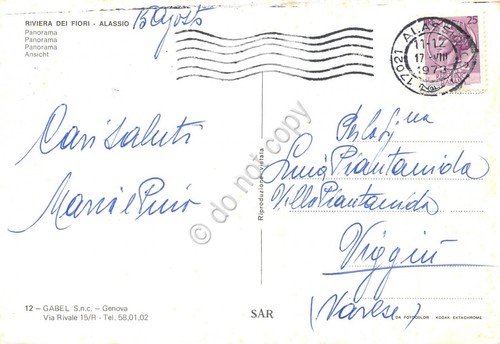 RIVIERA DEI FIORI - ALASSIO
Panorama
Panorama
Panorama
Ansicht
Cari saluti
Maria e Pino
12 - GABEL S.n.c. - Genova
Via Rivale 15/R - Tel. 58.01.02
Riproduzione vietata
SAR
25
17021
11-12
17 VIII
Piantanida
Villa Piantanida
Viggiù
(Varese)
DA FOTOCOLOR KODAK EKTACHROME
© do not copy